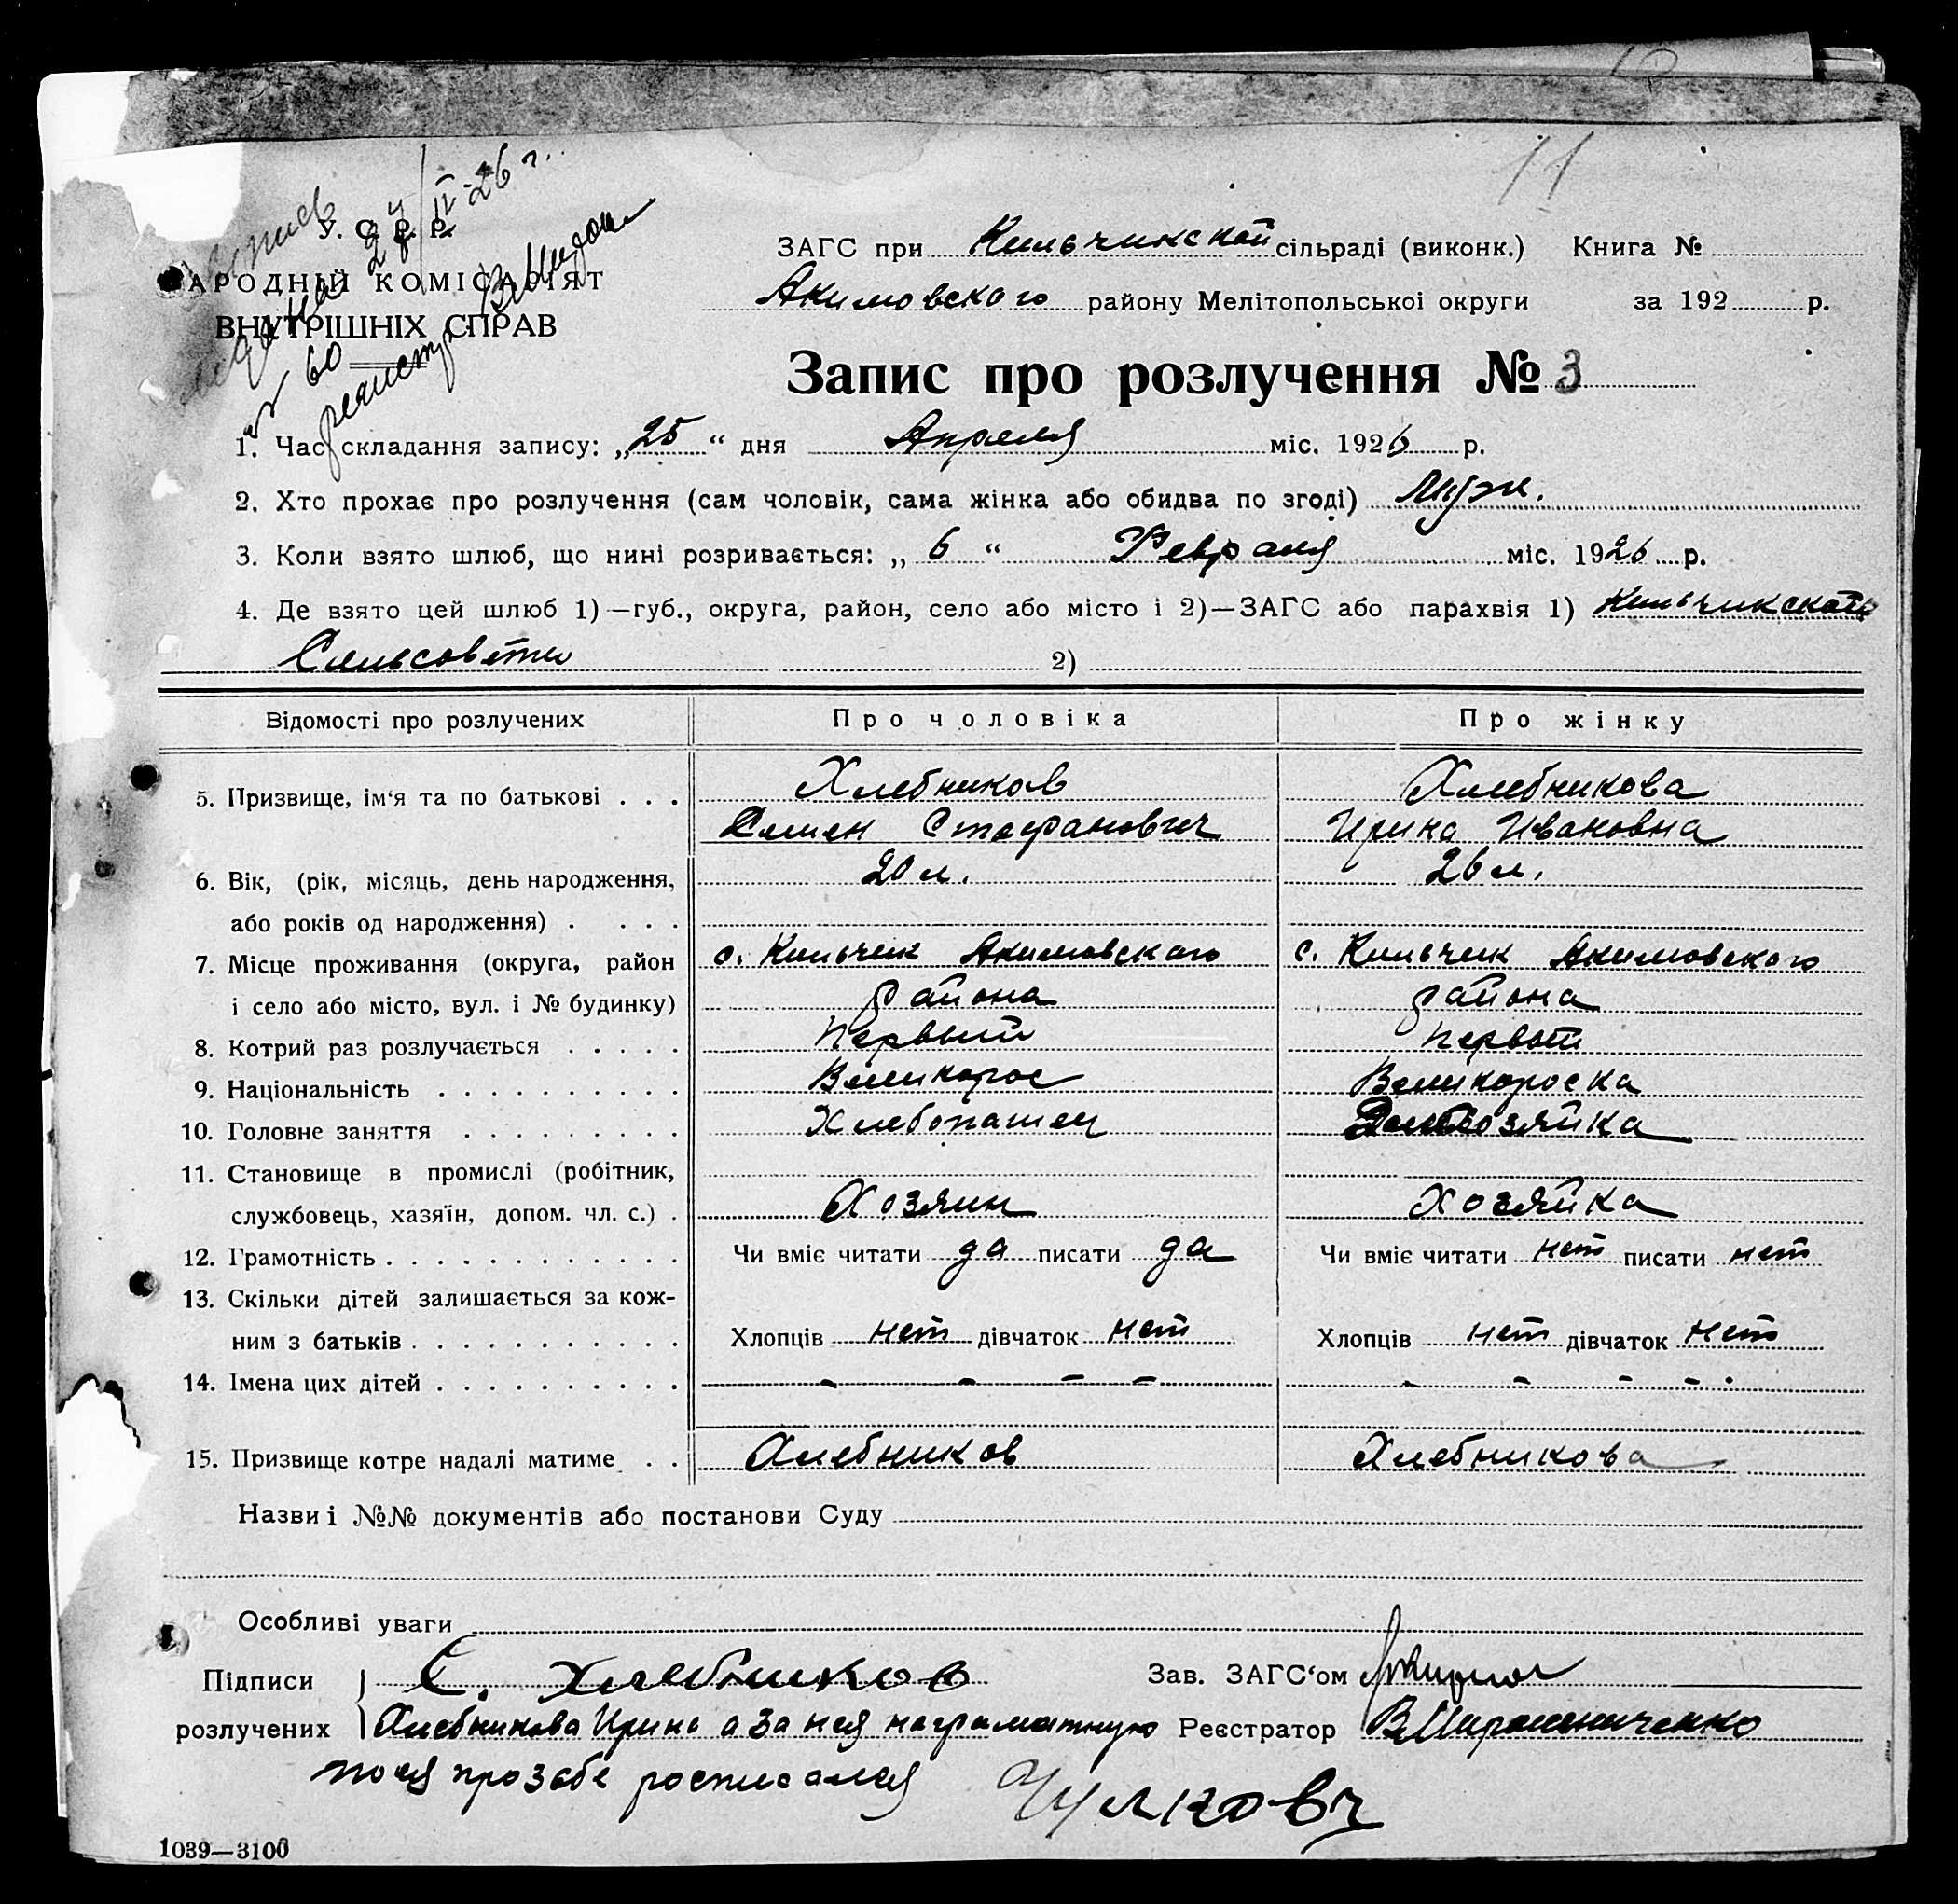 11
У. С. Р. Р.
АРОДНІЙ КОМІСАРІЯТ
ВНУТРІШНІХ СПРАВ
27/II-26 г.
№ 60
ЗАГС при Кильчикской сільраді (виконк.) Книга №
Акимовского району Мелітопольської округи за 192 р.
Запис про розлучення № 3
1. Час складання запису: „25“ дня Апреля міс. 1926 р.
2. Хто прохає про розлучення (сам чоловік, сама жінка або обидва по згоді) Муж.
3. Коли взято шлюб, що нині розривається: „6“ Февраля міс. 1926 р.
4. Де взято цей шлюб 1)—губ., округа, район, село або місто і 2)—ЗАГС або парахвія 1) Кильчикского
Сельсовета 2)
Відомості про розлучених Про чоловіка Про жінку
5. Призвище, ім‘я та по батькові . . . Хлебников Хлебникова
Семен Стефанович Ирина Ивановна
6. Вік, (рік, місяць, день народження, 20 л. 26 л.
або років од народження) . . . .
7. Місце проживання (округа, район с. Кильчик Акимовского с. Кильчик Акимовского
і село або місто, вул. і № будинку) района района
8. Котрий раз розлучається . . . . . Первый первый
9. Національність . . . . . . . . . . Великорос Великороска
10. Головне заняття . . . . . . . . . Хлебопашец Домохозяйка
11. Становище в промислі (робітник,
службовець, хазяїн, допом. чл. с.) . Хозяин Хозяйка
12. Грамотність . . . . . . . . . . . . Чи вміє читати да писати да Чи вміє читати нет писати нет
13. Скільки дітей залишається за кож-
ним з батьків . . . . . . . . . . . Хлопців нет дівчаток нет Хлопців нет дівчаток нет
14. Імена цих дітей . . . . . . . . . . - - - - - - - -
15. Призвище котре надалі матиме . . Хлебников Хлебникова
Назви і №№ документів або постанови Суду
Особливі уваги
Підписи С. Хлебников Зав. ЗАГС‘ом
розлучених Хлебникова Ирина а за нея неграматную Реєстратор В Мирошниченко
по ея прозбе росписался
1039—3100